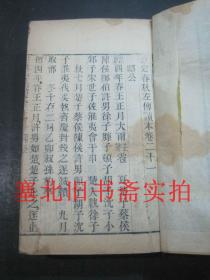 定春秋左傳讀本卷二十一
昭公
四年春王正月大雨雹 夏楚子蔡侯
陳侯鄭伯許男徐子滕子頓子胡子沈子小
邾子宋世子佐淮夷會于申 楚人執徐子
秋七月楚子蔡侯陳侯許男頓子胡子沈
子淮夷伐吳執齊慶封殺之遂滅賴 九月
取鄫 冬十有二月乙卯叔孫豹卒
傳四年春王正月許男如楚楚子止之遂止鄭
塞北旧书